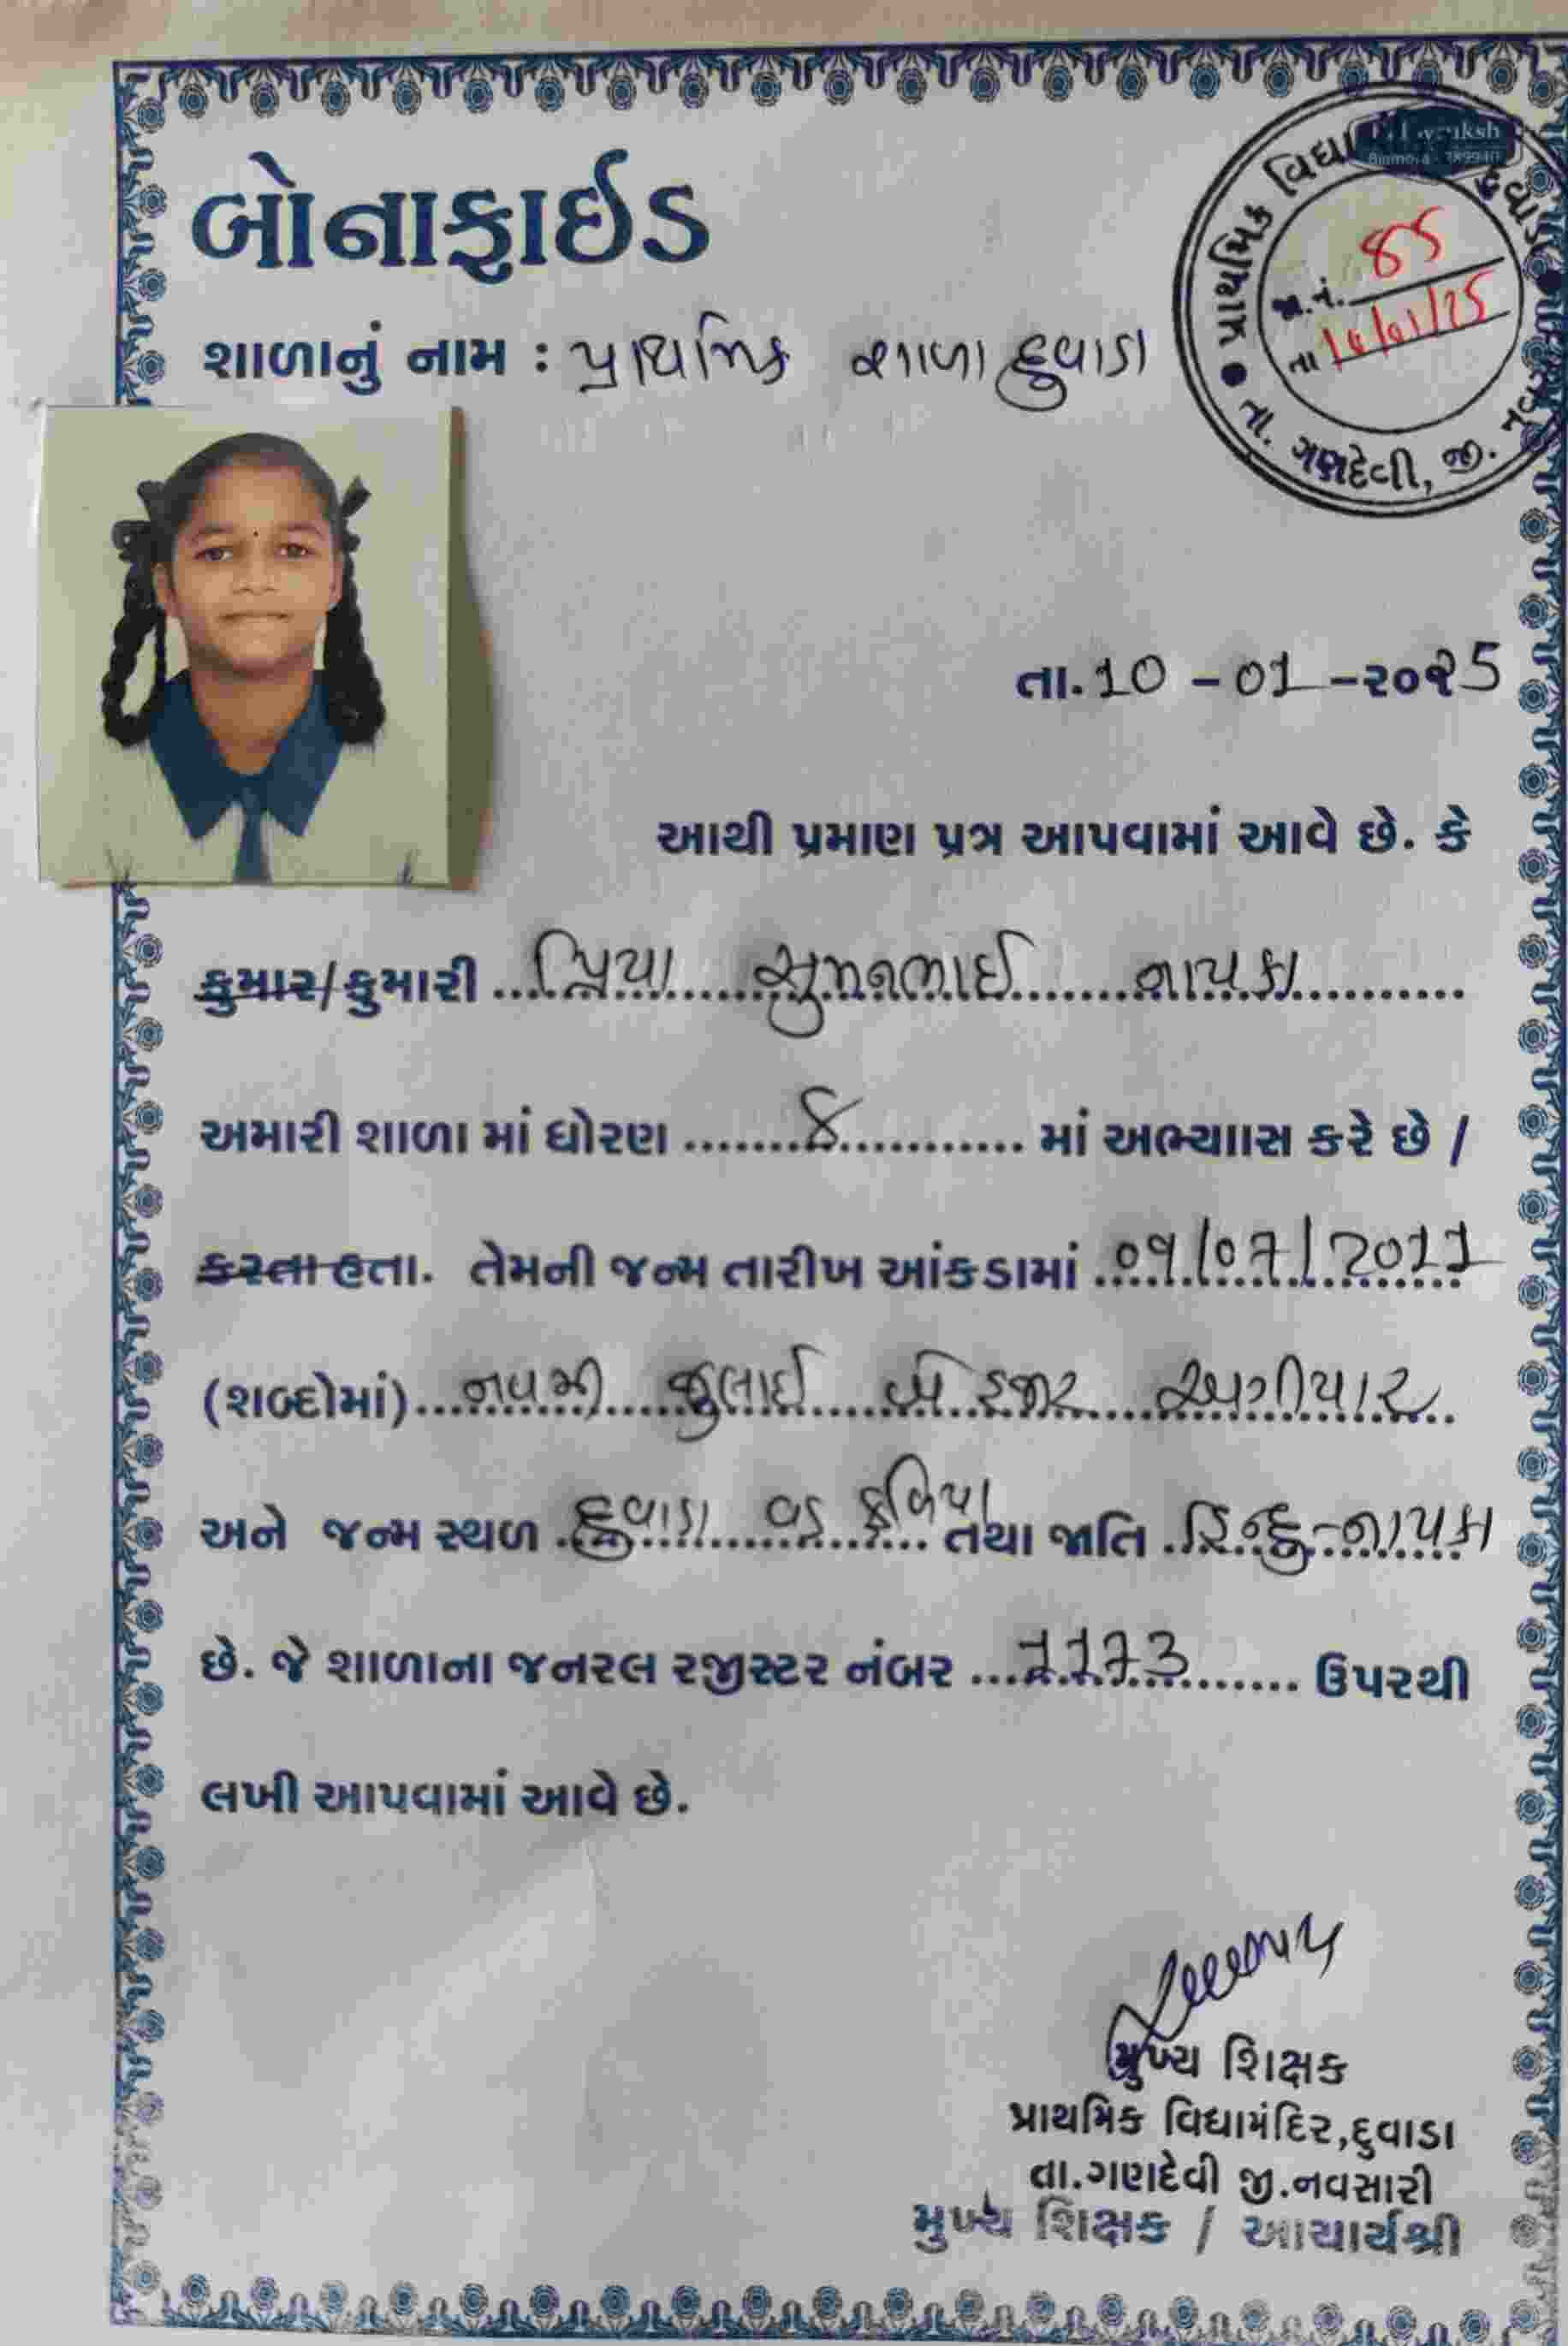 બોનાફાઈડ
શાળાનું નામ : પ્રાથમિક શાળા દુવાડા
પ્રાથમિક વિદ્યા
જા.નં. 85
તા
તા. ગણદેવી, જી.
તા. 10 - 01 - ૨૦૨5
આથી પ્રમાણ પત્ર આપવામાં આવે છે. કે
કુમાર/કુમારી પ્રિયા સુમનભાઈ નાયકા
અમારી શાળા માં ધોરણ 8 માં અભ્યાાસ કરે છે /
કરતા હતા. તેમની જન્મ તારીખ આંકડામાં 09/07/2011
(શબ્દોમાં) નવમી જુલાઈ બે હજાર અગીયાર
અને જન્મ સ્થળ દુવાડા વડ ફળિયા તથા જાતિ હિન્દુ-નાયકા
છે. જે શાળાના જનરલ રજીસ્ટર નંબર 1173 ઉપરથી
લખી આપવામાં આવે છે.
મુખ્ય શિક્ષક
પ્રાથમિક વિદ્યામંદિર,દુવાડા
તા.ગણદેવી જી.નવસારી
મુખ્ય શિક્ષક / આચાર્યશ્રી